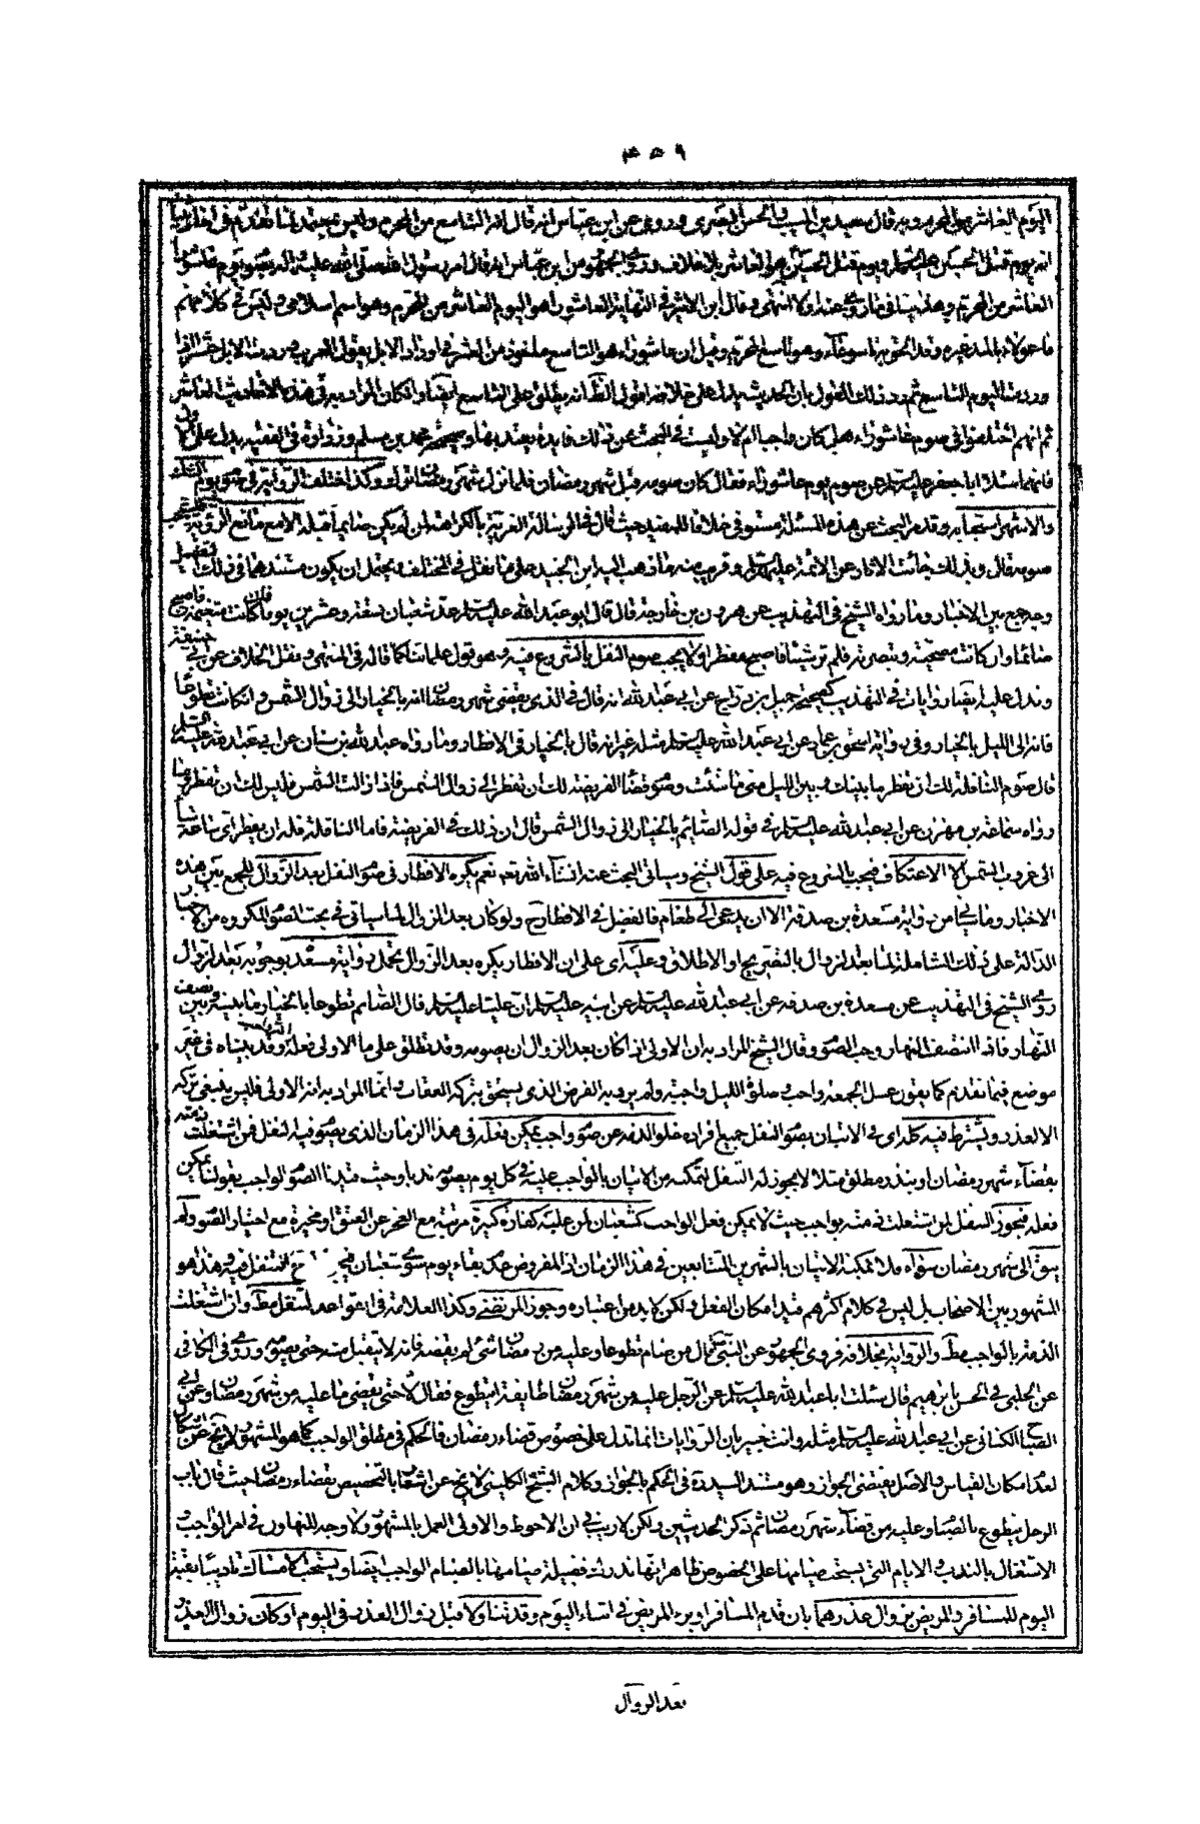 ٤٥٩
اليوم العاشر من المحرم وبه قال سعيد بن المسيب والحسن البصري وروي عن ابن عباس انه قال انه التاسع من المحرم وليس بمعتمد لما تقدم في احاديثنا
انه يوم قتل الحسين عليه السلام ويوم قتل الحسين هو العاشر بلا خلاف وروى الجمهور عن ابن عباس انه قال امر رسول الله صلى الله عليه واله بصوم يوم عاشورا
العاشر من المحرم وهذا ينافي ما روي عنه اولا انتهى وقال ابن الاثير في النهاية العاشوراء هو اليوم العاشر من المحرم وهو اسم اسلامي وليس في كلامهم
فاعولاء بالمد غيره وقد الحق به تاسوعاء وهو تاسع المحرم وقيل ان عاشوراء هو التاسع ماخوذ من العشر في اوراد الابل يقول العرب وردت الابل عشرا اذا
وردت اليوم التاسع ثم رد ذلك القول بان الحديث يدل على خلافه اقول الظ انه يطلق على التاسع ايضا وان كان المراد به في هذه الاحاديث العاشر
ثم انهم اختلفوا في صوم عاشوراء هل كان واجبا ام لا وليست في البحث عن ذلك فايدة يعتد بها وصحيحة محمد بن مسلم وزرارة في الفقيه يدل على الاول
فانهما سئلا ابا جعفر عليه السلام عن صوم يوم عاشوراء فقال كان صومه قبل شهر رمضان فلما نزل شهر رمضان ترك وكذا اختلف الرواية في صوم يوم الشك
والاشهر استحبابه وقد مر البحث عن هذه المسئلة مستوفى خلافا للمفيد حيث قال في الرسالة الغرية بالكراهة لمن لم يكن صائما قبله الا مع مانع الرؤية فيستحب
صومه قال وبذلك جائت الاثار عن الائمة عليهم السلم وقريب منه ما ذهب اليه ابن الجنيد على ما نقل في المختلف ويحتمل ان يكون مستندهما في ذلك التفصيل
وجه جمع بين الاخبار وما رواه الشيخ في التهذيب عن هرون بن خارجة قال قال ابو عبد الله عليه السلم عد شعبان تسعة وعشرين يوما فان كانت متغيمة فاصبح
صائما وان كانت مصحية وتبصرته فلم تر شيئا فاصبح مفطرا ولا يجب صوم النفل بالشروع فيه وهو قول علمائنا كما قاله في المنتهى ونقل الخلاف عن ابي حنيفة
ويدل عليه ايضا روايات في التهذيب كصحيحة جميل بن دراج عن ابي عبد الله انه قال في الذي يقضي شهر رمضان انه بالخيار الى زوال الشمس وان كانت تطوعا
فانه الى الليل بالخيار وفي رواية اسحق بن عمار عن ابي عبد الله عليه السلم مثله غير انه قال بالخيار في الافطار وما رواه عبد الله بن سنان عن ابي عبد الله عليه السلم
قال صوم النافلة لك ان تفطر ما بينك وبين الليل متى ما شئت وصوم قضا الفريضة لك ان تفطر الى زوال الشمس فاذا زالت الشمس فليس لك ان تفطر وما
رواه سماعة بن مهران عن ابي عبد الله عليه السلم في قوله الصائم بالخيار الى زوال الشمس قال ان ذلك في الفريضة فاما النافلة فله ان يفطر اي ساعة شاء
الى غروب الشمس الا الاعتكاف فيجب بالشروع فيه على قول الشيخ وسياتي البحث عنه انشاء الله تعم نعم يكره الافطار في صوم النفل بعد الزوال للجمع بين هذه
الاخبار وما يجي من رواية مسعدة بن صدقة الا ان يدعى الى طعام فالفضل في الافطار ح ولو كان بعد الزوال لما سياتي في بحث الصوم المكروه من الاخبار
الدالة على ذلك الشاملة لما بعد الزوال بالتصريح او الاطلاق وعليه اي على ان الافطار يكره بعد الزوال يحمل رواية مسعدة بوجوبه بعد الزوال
روى الشيخ في التهذيب عن مسعدة بن صدقة عن ابي عبد الله عليه السلم عن ابيه عليه السلم ان عليا عليه السلم قال الصائم تطوعا بالخيار ما بينه وبين نصف
النهار فاذا انتصف النهار وجب الصوم وقال الشيخ المراد به ان الاولى اذا كان بعد الزوال ان يصومه وقد نطلق على ما الاولى فعله وقد بيناه في غير
موضع فيما تقدم كما يقون غسل الجمعة واجب وصلوة الليل واجبة ولم يريد به الفرض الذي يستحق بتركه العقاب وانما المراد به انه الاولى فليس ينبغي تركه
الا لعذر ويشترط فيه كله اي في الاتيان بصوم النفل جميع افراده خلو الذمة عن صوم واجب يمكن فعله في هذا الزمان الذي يصوم فيه النفل فمن اشتغلت ذمته
بقضاء شهر رمضان او بنذر مطلق مثلا لا يجوز له التنفل لتمكنه من الاتيان بالواجب عليه في كل يوم يصومه ندبا وحيث قيدنا الصوم الواجب بقولنا يمكن
فعله فيجوز التنفل لمن اشتغلت ذمته بواجب حيث لا يمكن فعل الواجب كشعبان لمن عليه كفارة كبيرة مرتبة مع العجز عن العتق او مخيرة مع اختيار الصوم ولم
يبق الى شهر رمضان سواه فلا يمكنه الاتيان بالشهرين المتتابعين في هذا الزمان اذ المفروض عدم بقاء يوم سوى شعبان فيجوز ح التنفل فيه وهذا هو
المشهور بين الاصحاب بل ليس في كلام اكثرهم قيد امكان الفعل ولكن لا بد من اعتباره وجوز المرتضى وكذا العلامة في القواعد التنفل مط وان اشتغلت
الذمة بالواجب مط والرواية بخلافه فروى الجمهور عن النبي ص قال من صام تطوعا وعليه من رمضان شئ لم يقضه فانه لا يتقبل منه حتى يصومه وروى في الكافي
عن الحلبي في الحسن بابرهيم قال سئلت ابا عبد الله عليه السلم عن الرجل عليه من شهر رمضان طائفة ايتطوع فقال لا حتى يقضي ما عليه من شهر رمضان وعن ابي
الصباح الكناني عن ابي عبد الله عليه السلم مثله وانت خبير بان الروايات انما تدل على خصوص قضاء رمضان فالحكم في مطلق الواجب كما هو المشهور لا يخ عن اشكال
لعدم امكان القياس والاصل يقتضي الجواز وهو مستند السيد ره في الحكم بالجواز وكلام الشيخ الكليني لا يخ عن اشعار بالتخصيص بقضاء رمضان حيث قال باب
الرجل يتطوع بالصيام وعليه من قضاء شهر رمضان ثم ذكر الحديثين ولكن لا ريب في ان الاحوط والاولى العمل بالمشهور ولا وجه للتهاون في امر الواجب و
الاشتغال بالندب والايام التي يستحب صيامها على الخصوص ظاهر انها تدرك فضيلة صيامها بالصيام الواجب ايضا ويستحب الامساك تاديبا بقية
اليوم للمسافر والمريض بزوال عذرهما بان قدم المسافر او برء المريض في اثناء اليوم وقد تناولا قبل زوال العذر في اليوم او كان زوال العذر
بعد الزوال